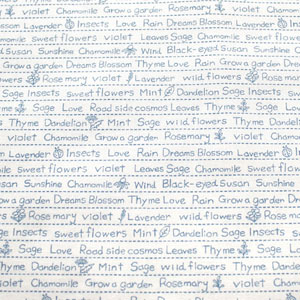 violet Chamomile Grow a garden Rosemary
Lavender Insects Love Rain Dreams Blossom Lavender
Chamomile sweet flowers violet Leaves Sage Chamomile
Black-eyed Susan Sunshine Chamomile Wind Black-eyed Susan
Rain Grow a garden Dreams Blossom Thyme Love Rain Grow
Thyme Dandelion Rosemary violet Lavender wild flowers Rosemary
Sage Insects sweet flowers Mint Dandelion Sage Insects
Thyme Sage Love Road side cosmos Leaves Thyme
wild flowers Thyme Dandelion Mint Sage wild flowers
violet Chamomile Grow a garden Rosemary violet
Lavender Insects Love Rain Dreams Blossom Lavender
Chamomile sweet flowers violet Leaves Sage Chamomile
Susan Sunshine Chamomile Wind Black-eyed Susan Sunshine
Grow a garden Dreams Blossom Thyme Love Rain Grow a garden
Rosemary violet Lavender wild flowers Rosemary
Sage Insects sweet flowers Mint Dandelion Sage Insects
Sage Love Road side cosmos Leaves Thyme Sage
Thyme Dandelion Mint Sage wild flowers Thyme
violet Chamomile Grow a garden Rosemary violet Chamomile
Insects Love Rain Dreams Blossom Lavender